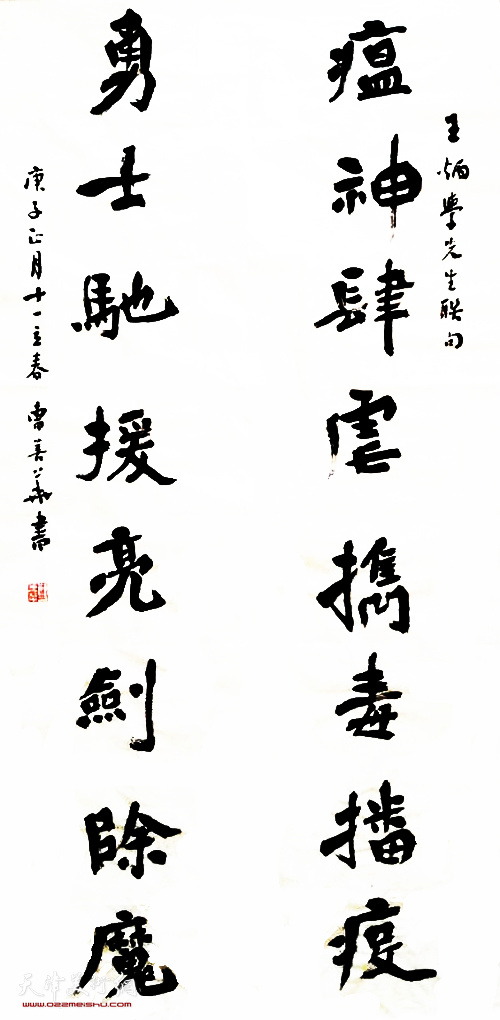 王炳學先生联句
瘟神肆虐携毒播疫
勇士馳援亮劍除魔
庚子正月十一立春 曹善华書
天津美術網
www.022meishu.com